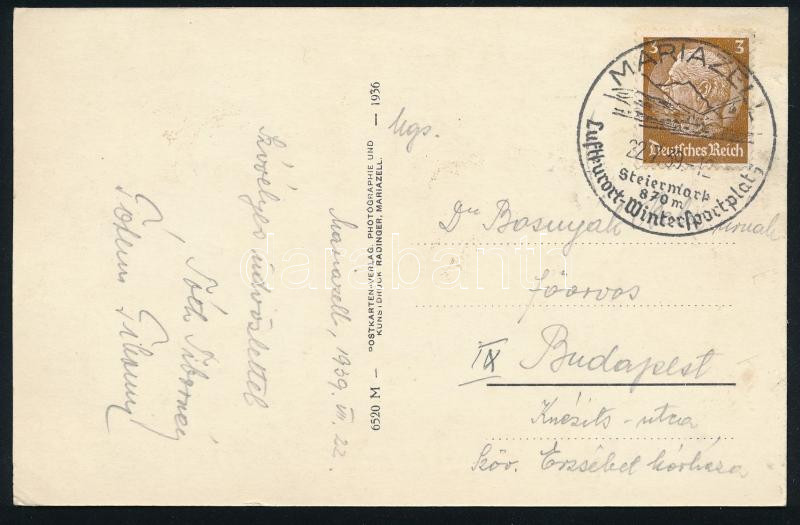 Szívélyes üdvözlettel
Tóth Tiborné
Mariazell, 1939. VII. 22.
6520 M — POSTKARTEN-VERLAG, PHOTOGRAPHIE UND — 1936
KUNSTDRUCK RADINGER, MARIAZELL.
3 3
Deutsches Reich
MARIAZELL
22.7.39.-12
Steiermark
870 m
Luftkurort-Wintersportplatz
Ngs.
Dr. Bosnyák
főorvos
IX Budapest
Knézits-utca
Szöv. Erzsébet kórháza
darabanth